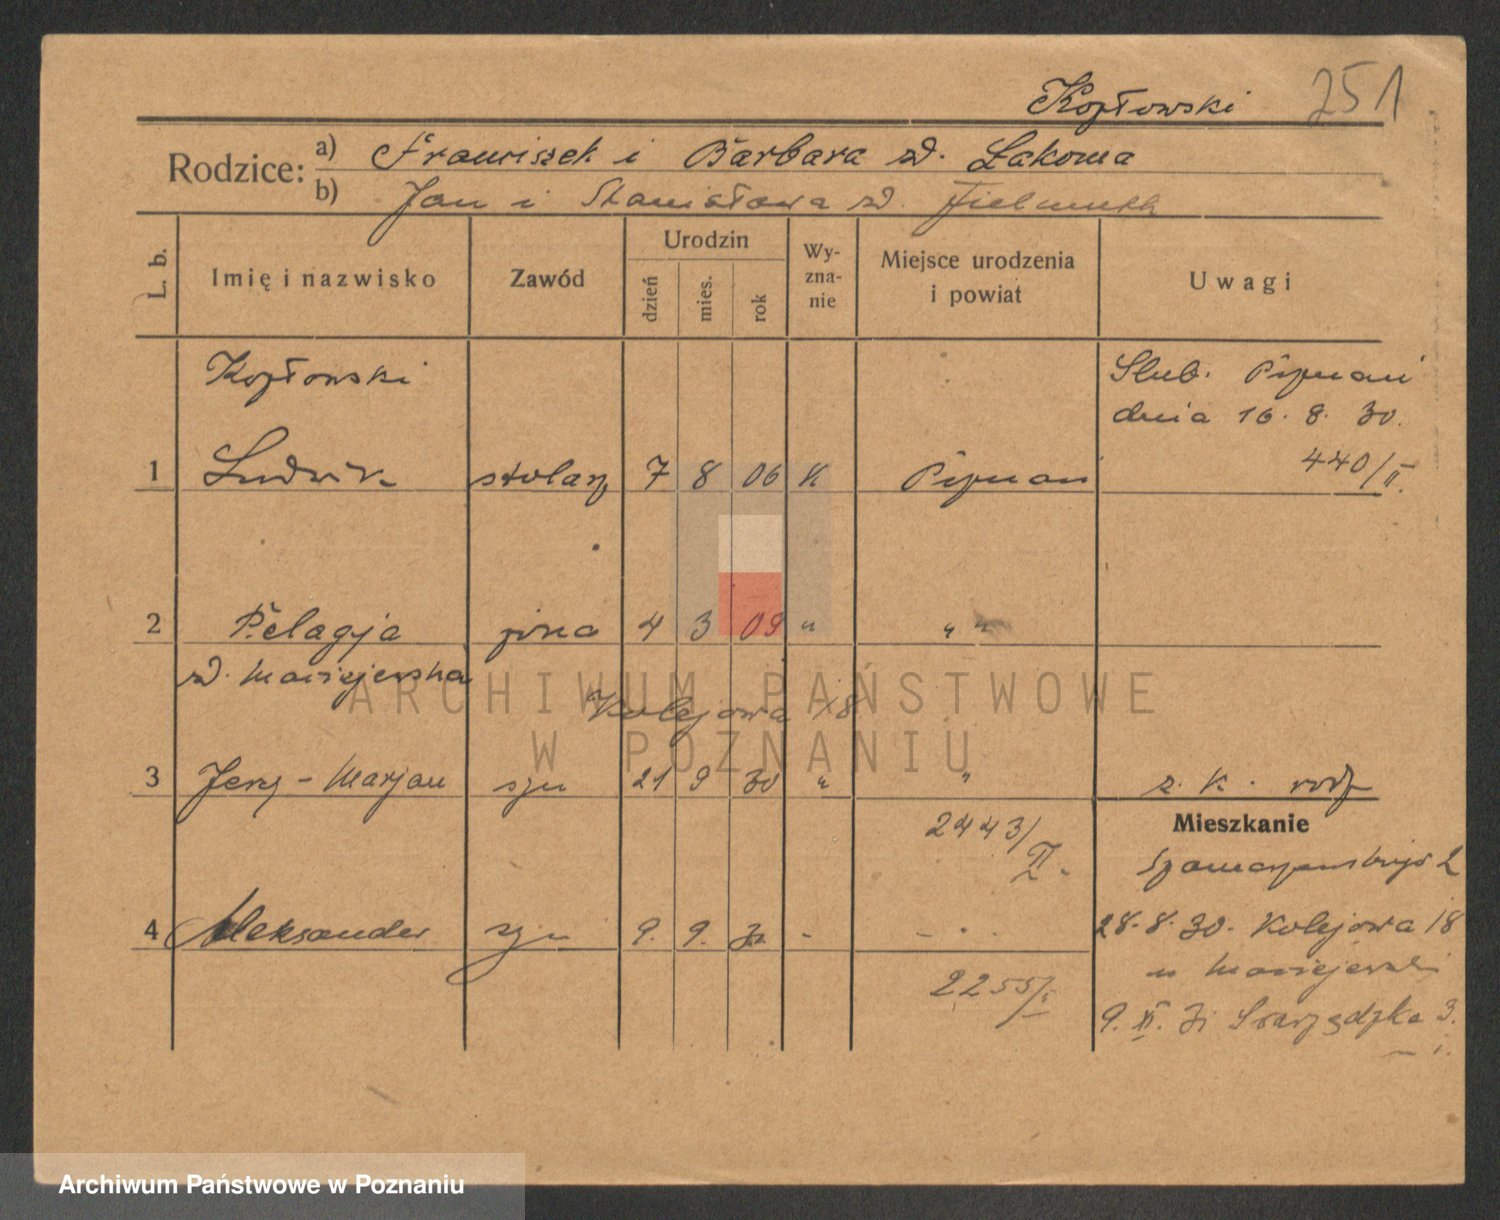 Kozłowski 251
Rodzice: a) Franciszek i Barbara zd. Łakoma
b) Jan i Stanisława zd. Fielmuth
L. b. Imię i nazwisko Zawód Urodzin dzień mies. rok Wy-zna-nie Miejsce urodzenia i powiat Uwagi
Kozłowski Slub. Poznań
dnia 16. 8. 30.
440/II.
1 Ludwik stolarz 7 8 06 K Poznań
2 Pelagja żona 4 3 09 " " "
zd. Maciejewska
Kolejowa 18
3 Jerzy - Marjan syn 21 9 30 " " z. K. rodz
2443/II.
Mieszkanie
2
4 Aleksander syn 9. 9. - - . .
28. 8. 30. Kolejowa 18
u Maciejewski
2255/I
9. XI. 31 3.
ARCHIWUM PAŃSTWOWE
W POZNANIU
Archiwum Państwowe w Poznaniu